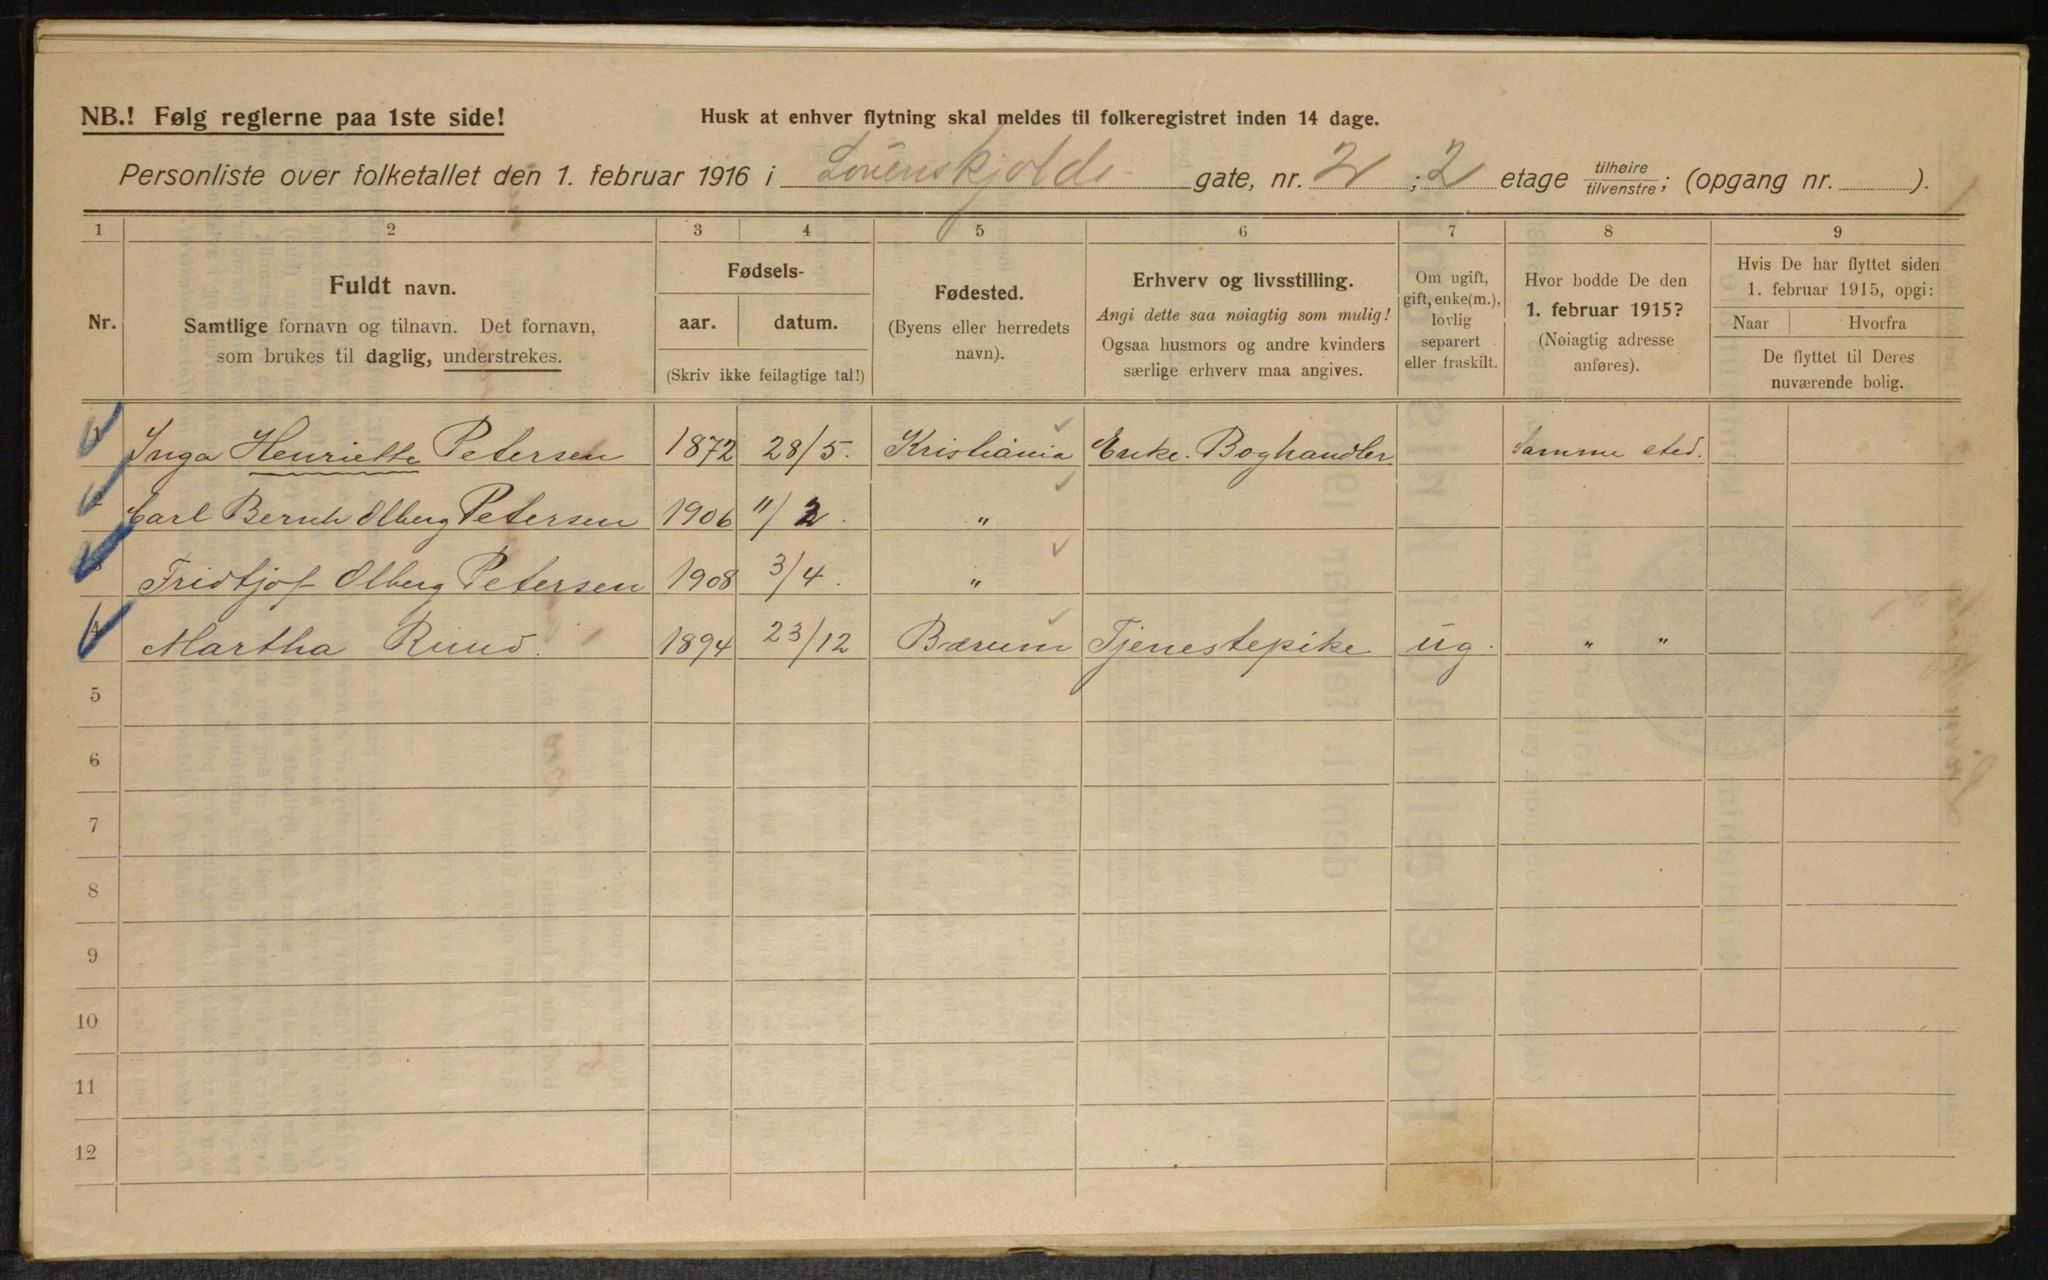 NB.! Følg reglerne paa 1ste side!
Husk at enhver flytning skal meldes til folkeregistret inden 14 dage.
Personliste over folketallet den 1. februar 1916 i Lövenskjolds gate, nr. 2 ; 2 etage tilhøire/tilvenstre; (opgang nr. ).
1 2 3 4 5 6 7 8 9
Nr.
Fuldt navn.
Samtlige fornavn og tilnavn. Det fornavn,
som brukes til daglig, understrekes.
Fødsels-
aar. datum.
(Skriv ikke feilagtige tal!)
Fødested.
(Byens eller herredets
navn).
Erhverv og livsstilling.
Angi dette saa nøiagtig som mulig!
Ogsaa husmors og andre kvinders
særlige erhverv maa angives.
Om ugift,
gift, enke(m.),
lovlig
separert
eller fraskilt.
Hvor bodde De den
1. februar 1915?
(Nøiagtig adresse
anføres).
Hvis De har flyttet siden
1. februar 1915, opgi:
Naar Hvorfra
De flyttet til Deres
nuværende bolig.
1 Inga Henriette Petersen 1872 28/5. Kristiania Enke. Boghandler Samme sted.
2 Carl Bernh Olberg Petersen 1906 11/2. "
3 Fridtjof Olberg Petersen 1908 3/4. "
4 Martha Ruud. 1894 23/12 Bærum Tjenestepike ug. " "
5
6
7
8
9
10
11
12